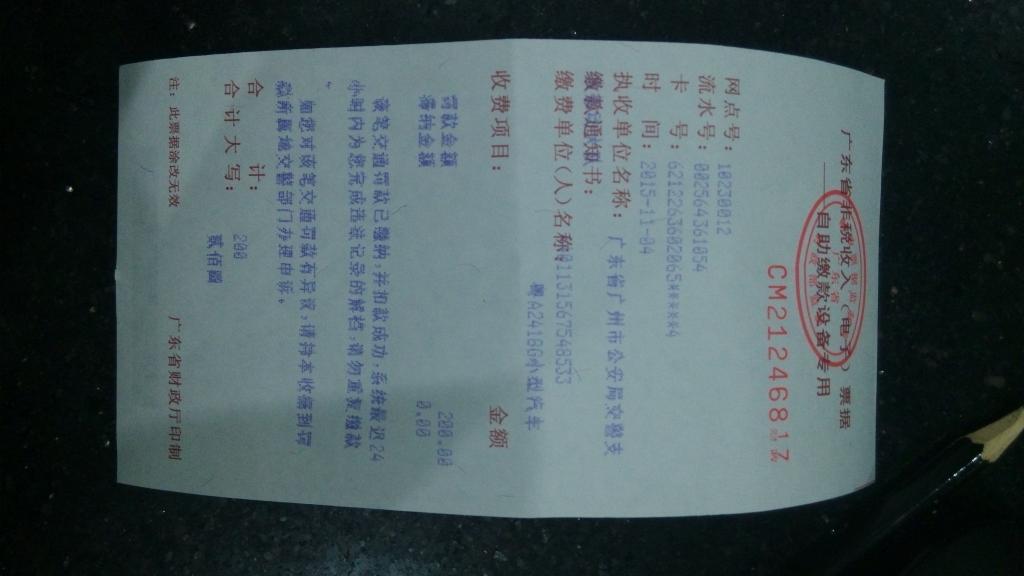 广东省非税收入(电子)票据
自助缴款设备专用
CM21246817
网点号:10230012
流水号:002564361054
卡 号:6212263602065******4
时 间:2015-11-04
执收单位名称: 广东省广州市公安局交警支
缴款通知书:
4401131567548533
缴费单位(人)名称:
粤A2418G小型汽车
收费项目: 金额
罚款金额 200.00
滞纳金额 0.00
该笔交通罚款已缴纳,并扣款成功,系统最迟24
小时内为您完成违法记录的解档,请勿重复缴款
。
如您对该笔交通罚款有异议,请持本收据到
所属地交警部门办理申诉。
合 计: 200
合计大写: 贰佰圆
注:此票据涂改无效 广东省财政厅印制